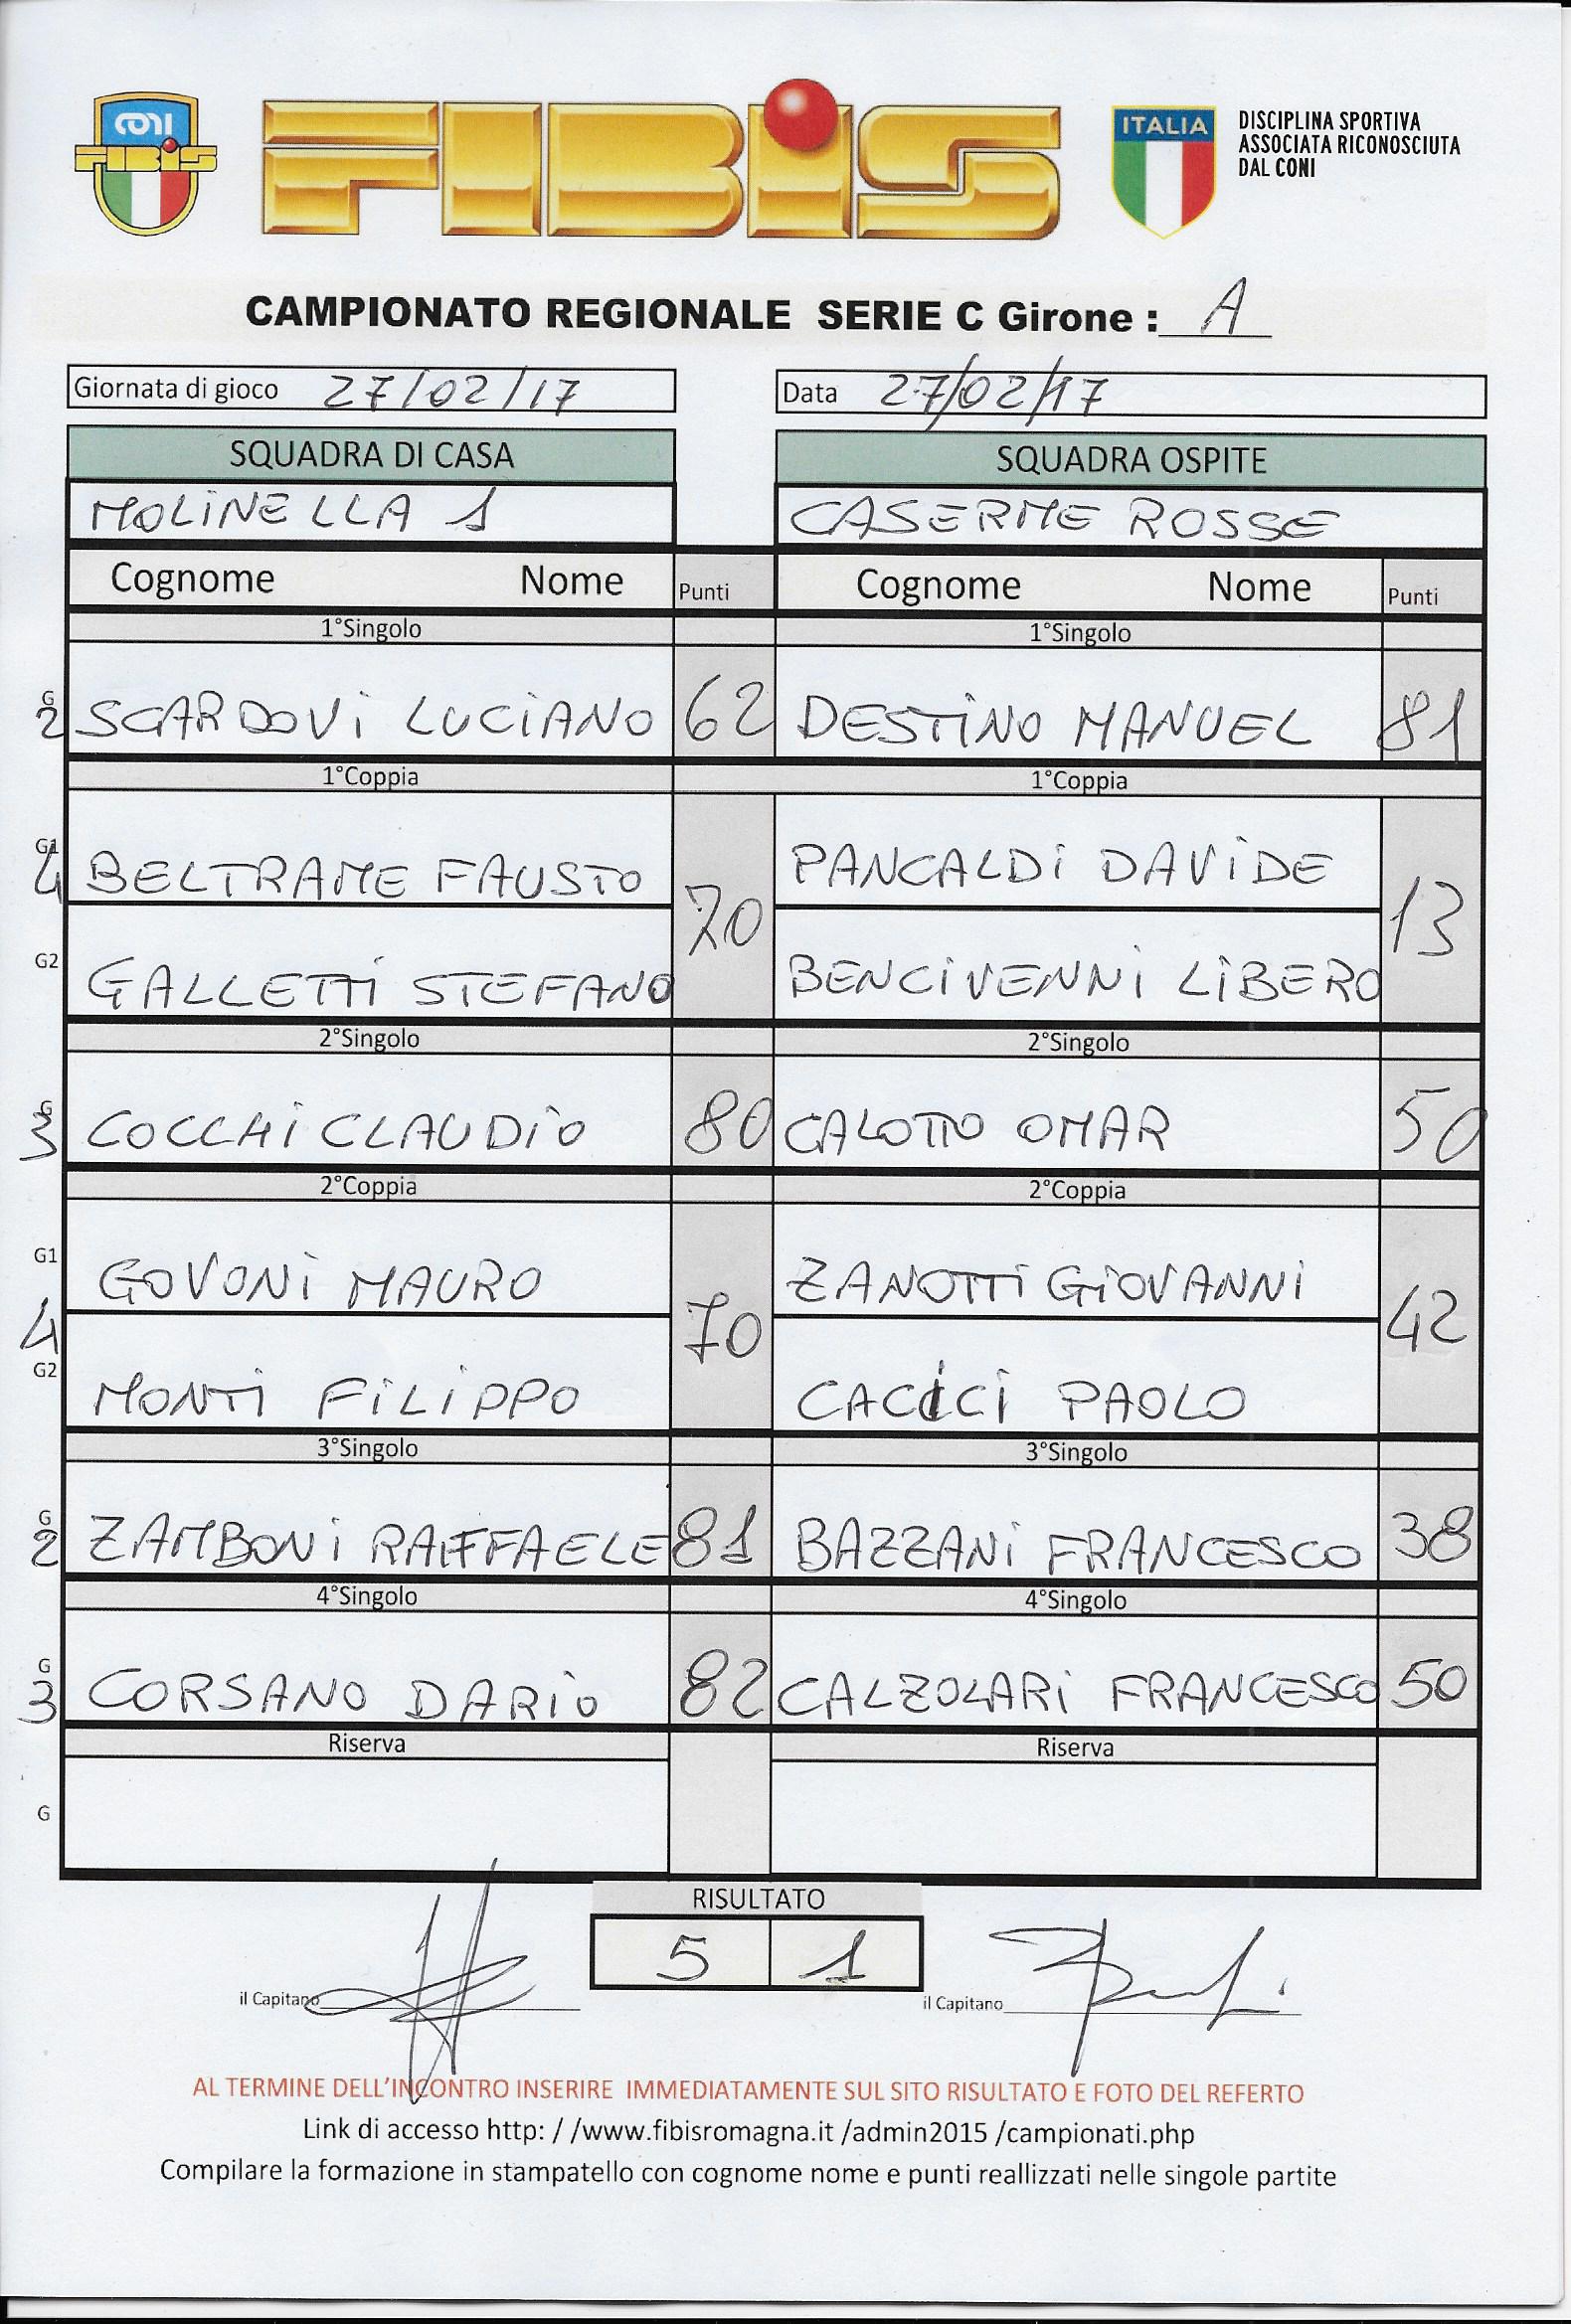 CONI
FIBIS
FIBIS
ITALIA
DISCIPLINA SPORTIVA
ASSOCIATA RICONOSCIUTA
DAL CONI
CAMPIONATO REGIONALE SERIE C Girone : A
Giornata di gioco 27/02/17 Data 27/02/17
SQUADRA DI CASA SQUADRA OSPITE
MOLINELLA 1 CASERME ROSSE
Cognome Nome Punti Cognome Nome Punti
1°Singolo 1°Singolo
G
2 SGARDOVI LUCIANO 62 DESTINO MANUEL 81
1°Coppia 1°Coppia
G1
4 BELTRAME FAUSTO 70 PANCALDI DAVIDE 13
G2 GALLETTI STEFANO BENCIVENNI LIBERO
2°Singolo 2°Singolo
G
3 COCCHI CLAUDIO 80 CALOTTO OMAR 50
2°Coppia 2°Coppia
G1 GOVONI MAURO 70 ZANOTTI GIOVANNI 42
4
G2 MONTI FILIPPO CACICI PAOLO
3°Singolo 3°Singolo
G
2 ZAMBONI RAFFAELE 81 BAZZANI FRANCESCO 38
4°Singolo 4°Singolo
G
3 CORSANO DARIO 82 CALZOLARI FRANCESCO 50
Riserva Riserva
G
RISULTATO
5 1
il Capitano il Capitano
AL TERMINE DELL'INCONTRO INSERIRE IMMEDIATAMENTE SUL SITO RISULTATO E FOTO DEL REFERTO
Link di accesso http: / /www.fibisromagna.it /admin2015 /campionati.php
Compilare la formazione in stampatello con cognome nome e punti reallizzati nelle singole partite